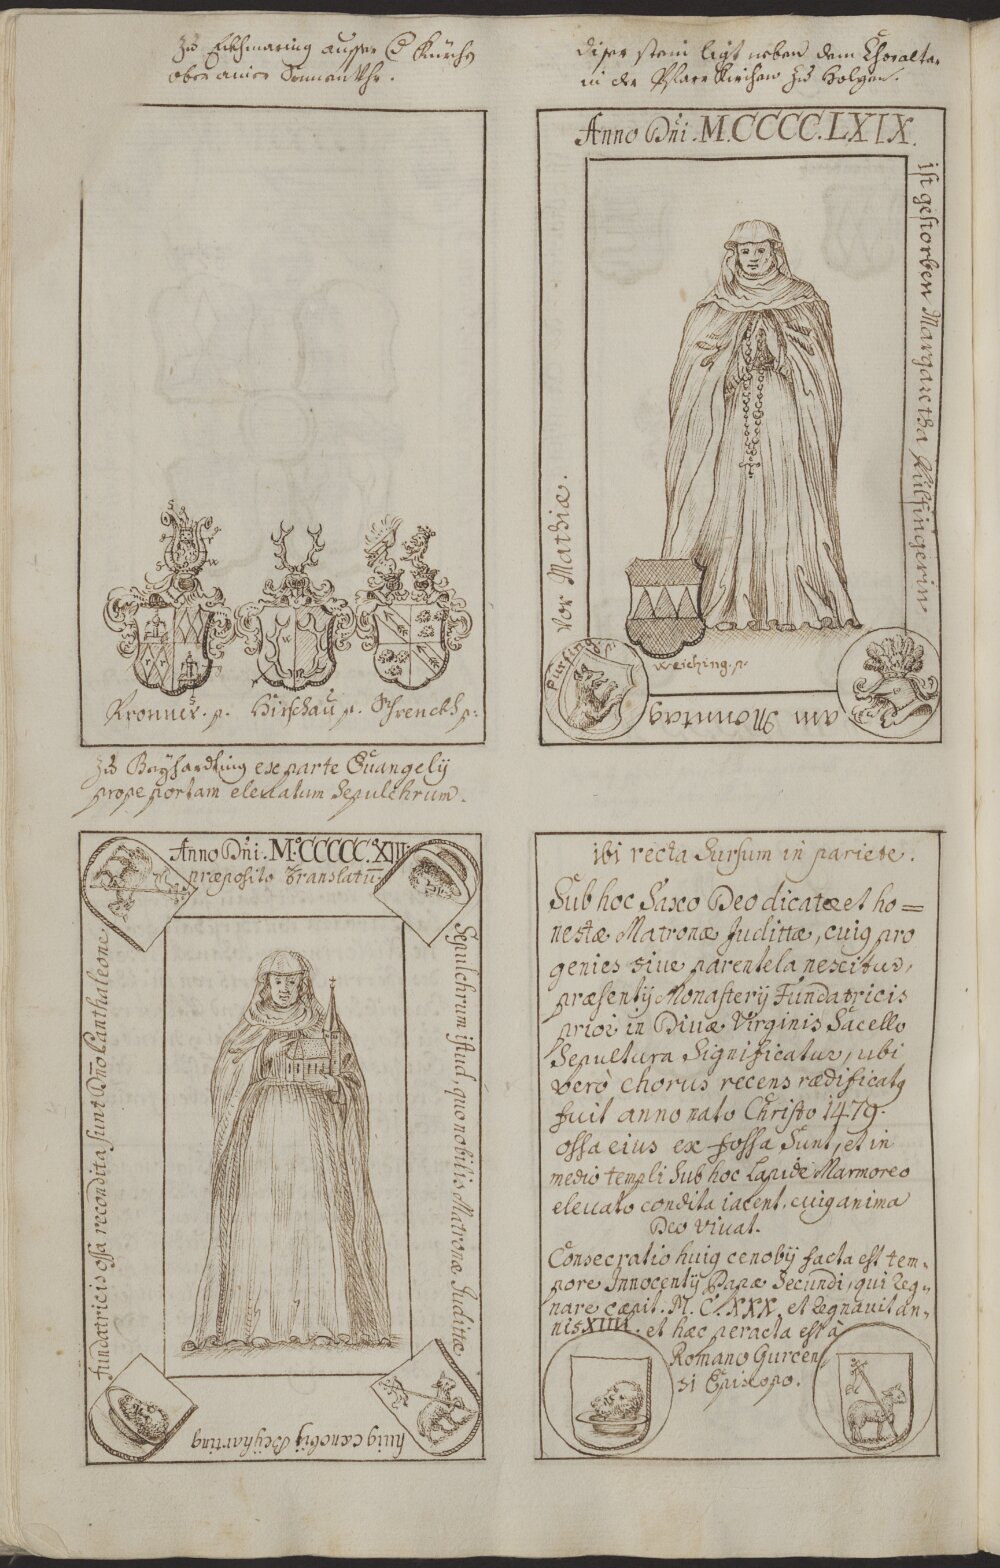 Zu Eckhmaring ausser der Kürchen
ober ainer Sonnen Uhr.
Kronner. p. Hirschaü p. Schrenckh p.
diser stain ligt neben dem Choraltar
in der Pfarr Kirchen zu
Anno Dni. M.CCCC.LXIX.
ist gestorben Margaretha
am Monntag
vor Mathiæ.
Weiching. p.
Zu Beyhardting ex parte Euangelij
prope portam eleuatum Sepulchrum.
Anno Dni. M.CCCCC.XIII
præposito translatu
Sepulchrum istud, quo nobilis Matronæ Judittæ
huig cœnobij Beyharting
fundatricis ossa recondita sunt Dno Panthaleone
ibi recta Sursum in pariete.
Sub hoc Saxo Deo dicatæ et ho=
nestæ Matronæ Judittæ, cuig pro
genies siue parentela nescitur,
præsentij Monasterij Fundatricis
priori in Diuæ Virginis Sacello
Sepultura Significatur, ubi
verò chorus recens rædificatg
fuit anno nato Christo 1479.
ossa eius ex fossa Sunt, et in
medio templi Sub hoc Lapide Marmoreo
eleuato condita iacent, cuig anima
Deo viuat.
Consecratio huig cenobij facta est tem-
pore Innocentij Papæ Secundi, qui Reg-
nare cæpit. M. C. XXX, et Regnauit an-
nis XIIII. et hæc peracta est à
Romano Gurcen
si Episcopo.